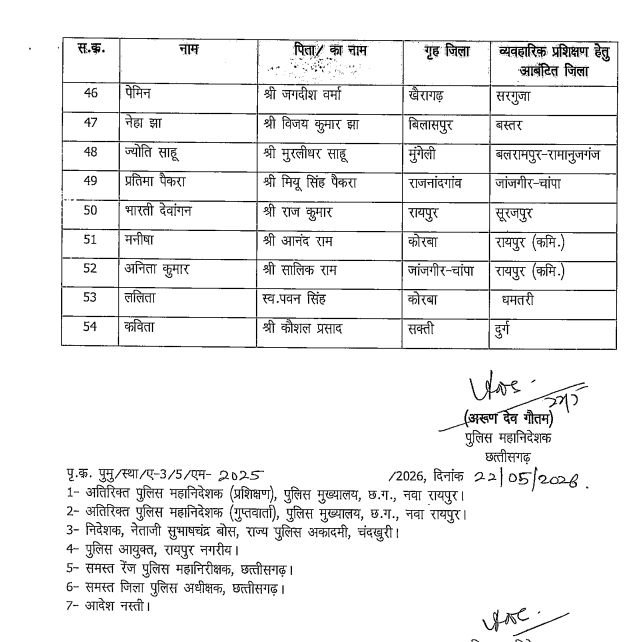 स.क. नाम पिता/ का नाम गृह जिला व्यवहारिक प्रशिक्षण हेतु
आबंटित जिला
46 पेमिन श्री जगदीश वर्मा खैरागढ़ सरगुजा
47 नेहा झा श्री विजय कुमार झा बिलासपुर बस्तर
48 ज्योति साहू श्री मुरलीधर साहू मुंगेली बलरामपुर-रामानुजगंज
49 प्रतिमा पैकरा श्री मियू सिंह पैकरा राजनांदगांव जांजगीर-चांपा
50 भारती देवांगन श्री राज कुमार रायपुर सूरजपुर
51 मनीषा श्री आनंद राम कोरबा रायपुर (कमि.)
52 अनिता कुमार श्री सालिक राम जांजगीर-चांपा रायपुर (कमि.)
53 ललिता स्व.पवन सिंह कोरबा धमतरी
54 कविता श्री कौशल प्रसाद सक्ती दुर्ग
(अरूण देव गौतम)
पुलिस महानिदेशक
छत्तीसगढ़
पृ.क. पुमु/स्था/ए-3/5/एम- 2025 /2026, दिनांक 22/05/2026.
1- अतिरिक्त पुलिस महानिदेशक (प्रशिक्षण), पुलिस मुख्यालय, छ.ग., नवा रायपुर।
2- अतिरिक्त पुलिस महानिदेशक (गुप्तवार्ता), पुलिस मुख्यालय, छ.ग., नवा रायपुर।
3- निदेशक, नेताजी सुभाषचंद्र बोस, राज्य पुलिस अकादमी, चंदखुरी।
4- पुलिस आयुक्त, रायपुर नगरीय।
5- समस्त रेंज पुलिस महानिरीक्षक, छत्तीसगढ़।
6- समस्त जिला पुलिस अधीक्षक, छत्तीसगढ़।
7- आदेश नस्ती।